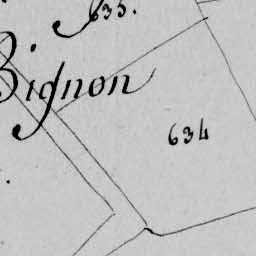 635.
Bignon
634